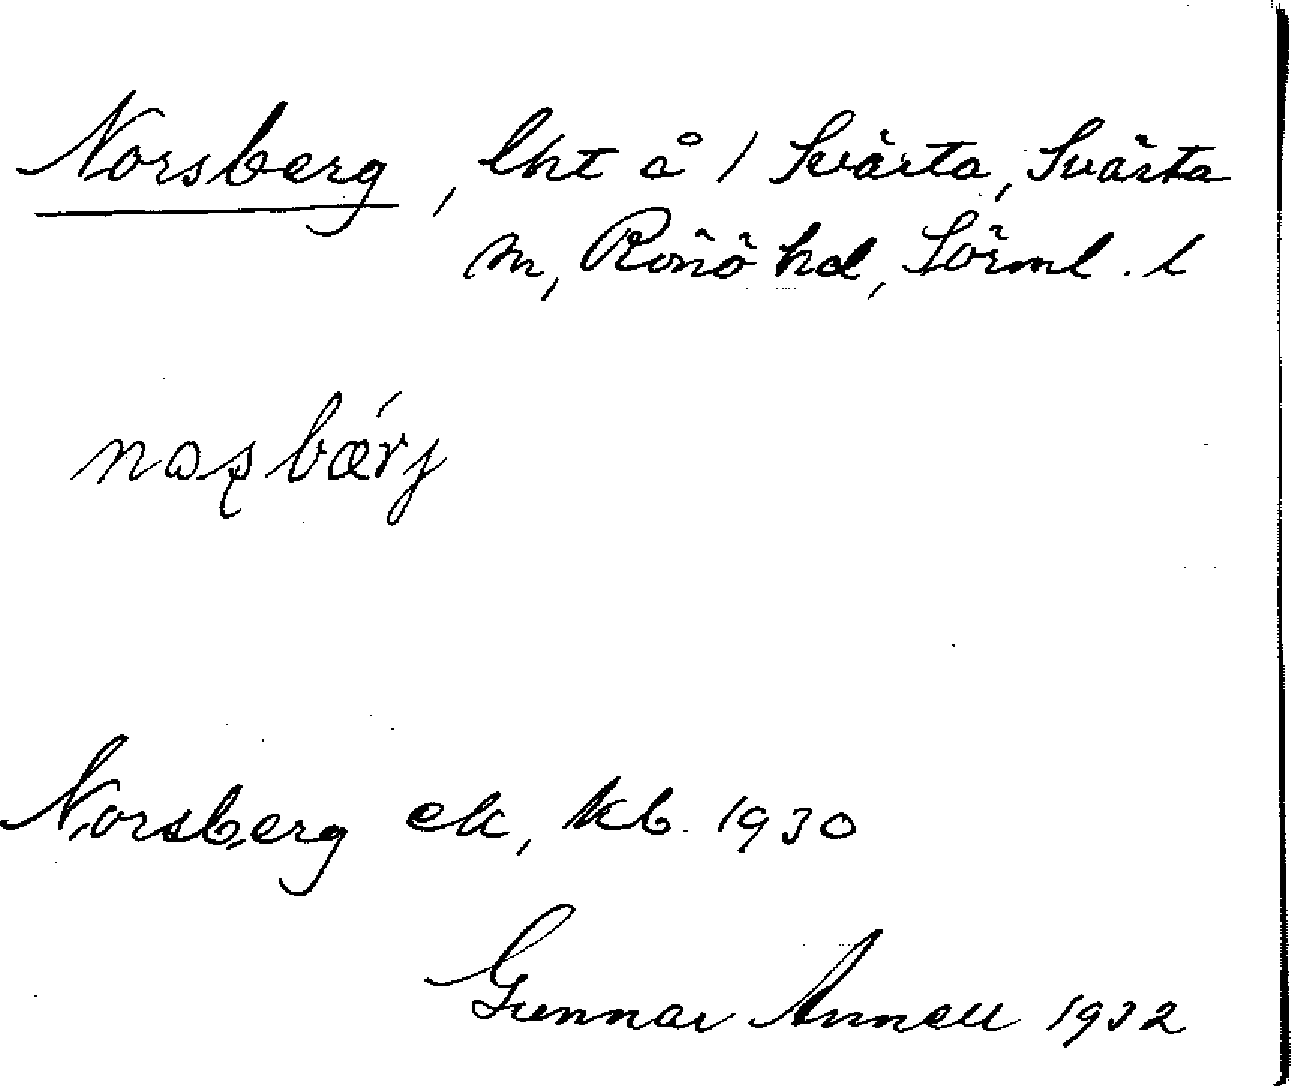 Norsberg, lht å 1 Svärta, Svärta
sn, Rönö hd, Sörml. l
Norsberg ek, kb. 1930
Gunnar Annell 1932